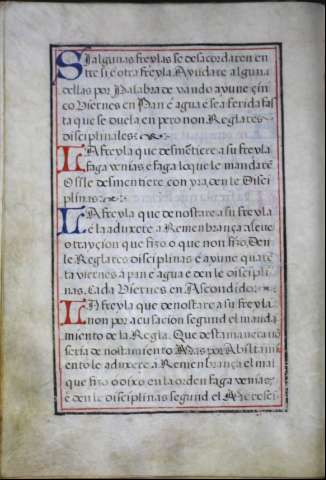 Si algunas freylas se desacordaren en
tre si e otra freyla Ayudare alguna
dellas por Palabra de vando ayune çin
co Viernes en Pan e agua e sea ferida fas
ta que se duela en pero non Reglares
disciplinales
La freyla que desmẽtiere a su freyla
faga venias e faga lo que le mandarẽ
O si le desmentiere con yra, den le Disci
plinas
La freyla que denostare a su freyla
e la aduxere a Remenbrança aleve
o trayçion que fizo o que non fizo, Den
le Reglares disciplinas e ayune quarẽ
ta viernes a pan e agua e den le disciplí
nas, Cada Viernes en Ascondido
La freyla que denostare a su freyla
non por acusaçion segund el manda
miento de la Regla. Que desta manera
seria denostamiento Mas por
ento le aduxere a Remenbrança el mal
que fizo o dixo en la orden faga venias,
e den le disciplinas segund el